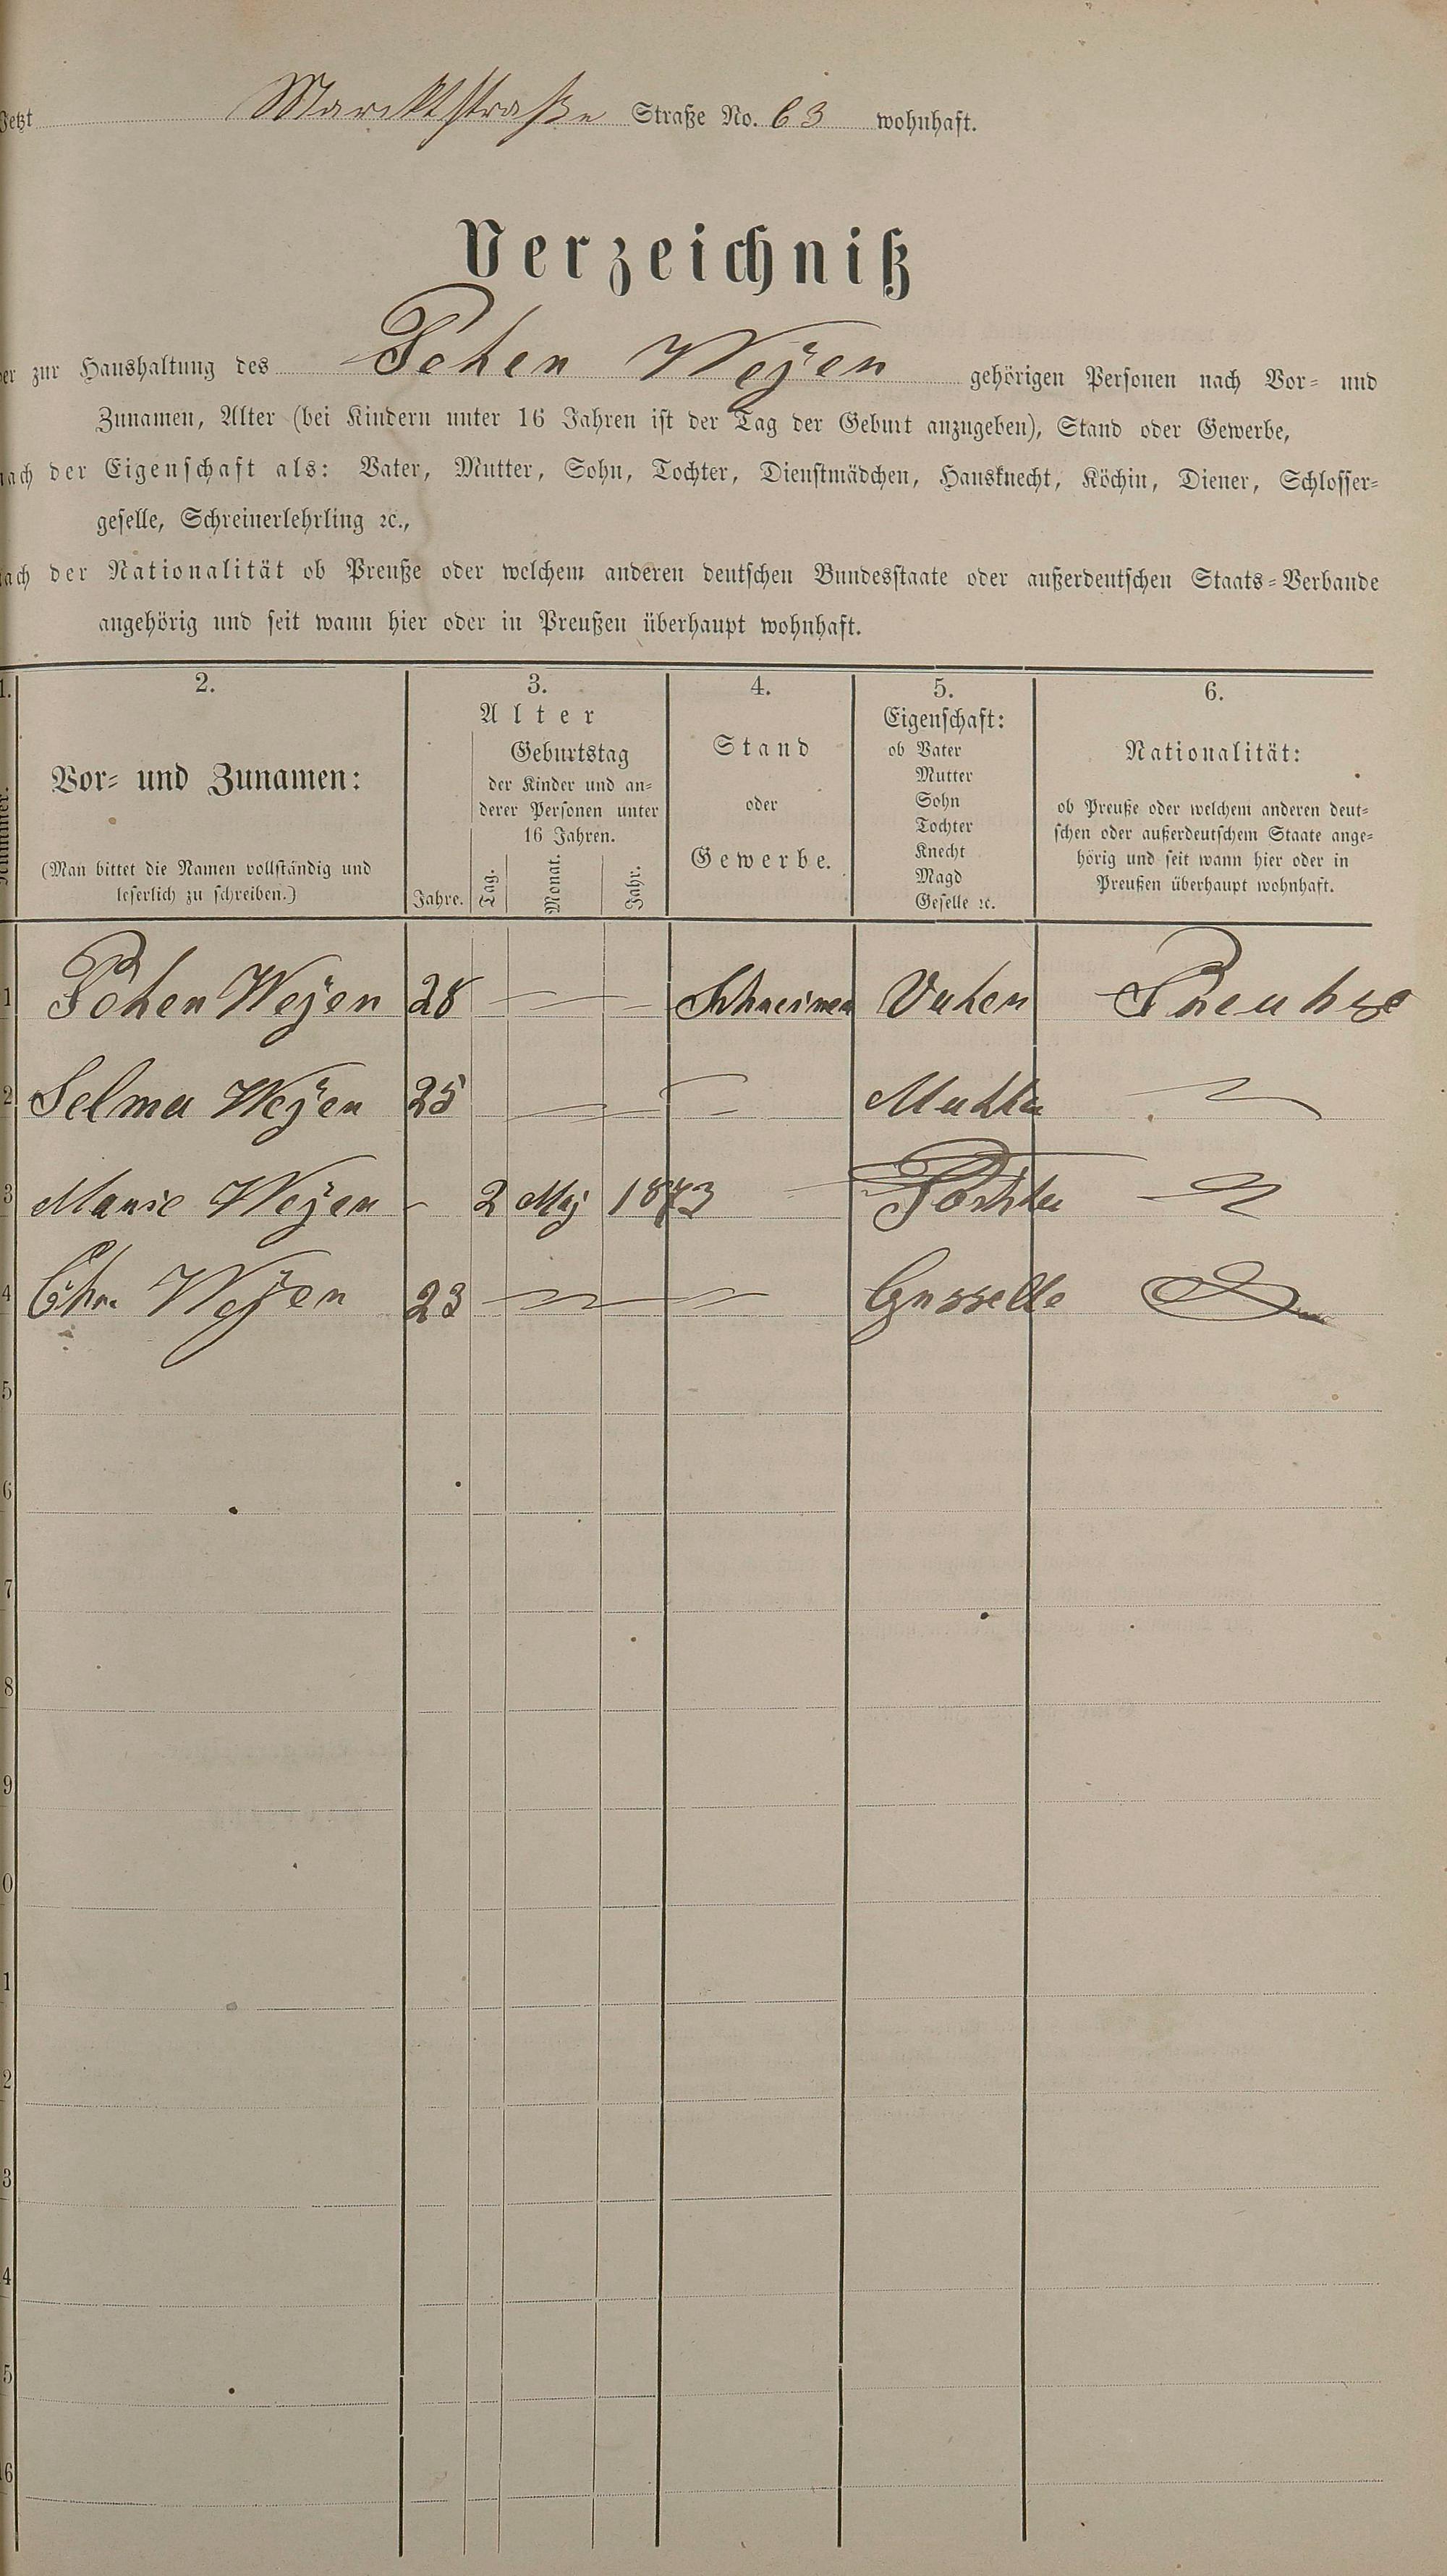 Jetzt Marcktstraße Straße No. 63 wohnhaft.
Verzeichniß
der zur Haushaltung des Peter Weÿer gehörigen Personen nach Vor- und
Zunamen, Alter (bei Kindern unter 16 Jahren ist der Tag der Geburt anzugeben), Stand oder Gewerbe,
nach der Eigenschaft als: Vater, Mutter, Sohn, Tochter, Dienstmädchen, Hausknecht, Köchin, Diener, Schlosser-
geselle, Schreinerlehrling ꝛc.,
nach der Nationalität ob Preuße oder welchem anderen deutschen Bundesstaate oder außerdeutschen Staats-Verbande
angehörig und seit wann hier oder in Preußen überhaupt wohnhaft.
1. 2. 3. 4. 5. 6.
Nummer.
Vor- und Zunamen:
(Man bittet die Namen vollständig und
leserlich zu schreiben.)
Alter
Jahre.
Geburtstag
der Kinder und an-
derer Personen unter
16 Jahren.
Tag. Monat. Jahr.
Stand
oder
Gewerbe.
Eigenschaft:
ob Vater
Mutter
Sohn
Tochter
Knecht
Magd
Geselle ꝛc.
Nationalität:
ob Preuße oder welchem anderen deut-
schen oder außerdeutschem Staate ange-
hörig und seit wann hier oder in
Preußen überhaupt wohnhaft.
1 Peter Weÿer 28 — Schreiner Vater Preuhse
2 Selma Weÿer 25 — Mutter
3 Marie Weÿer - 2 Maj 1873 Tochter
4 Chr. Weÿer 23 — Gesselle
5
6
7
8
9
0
1
2
3
4
5
16